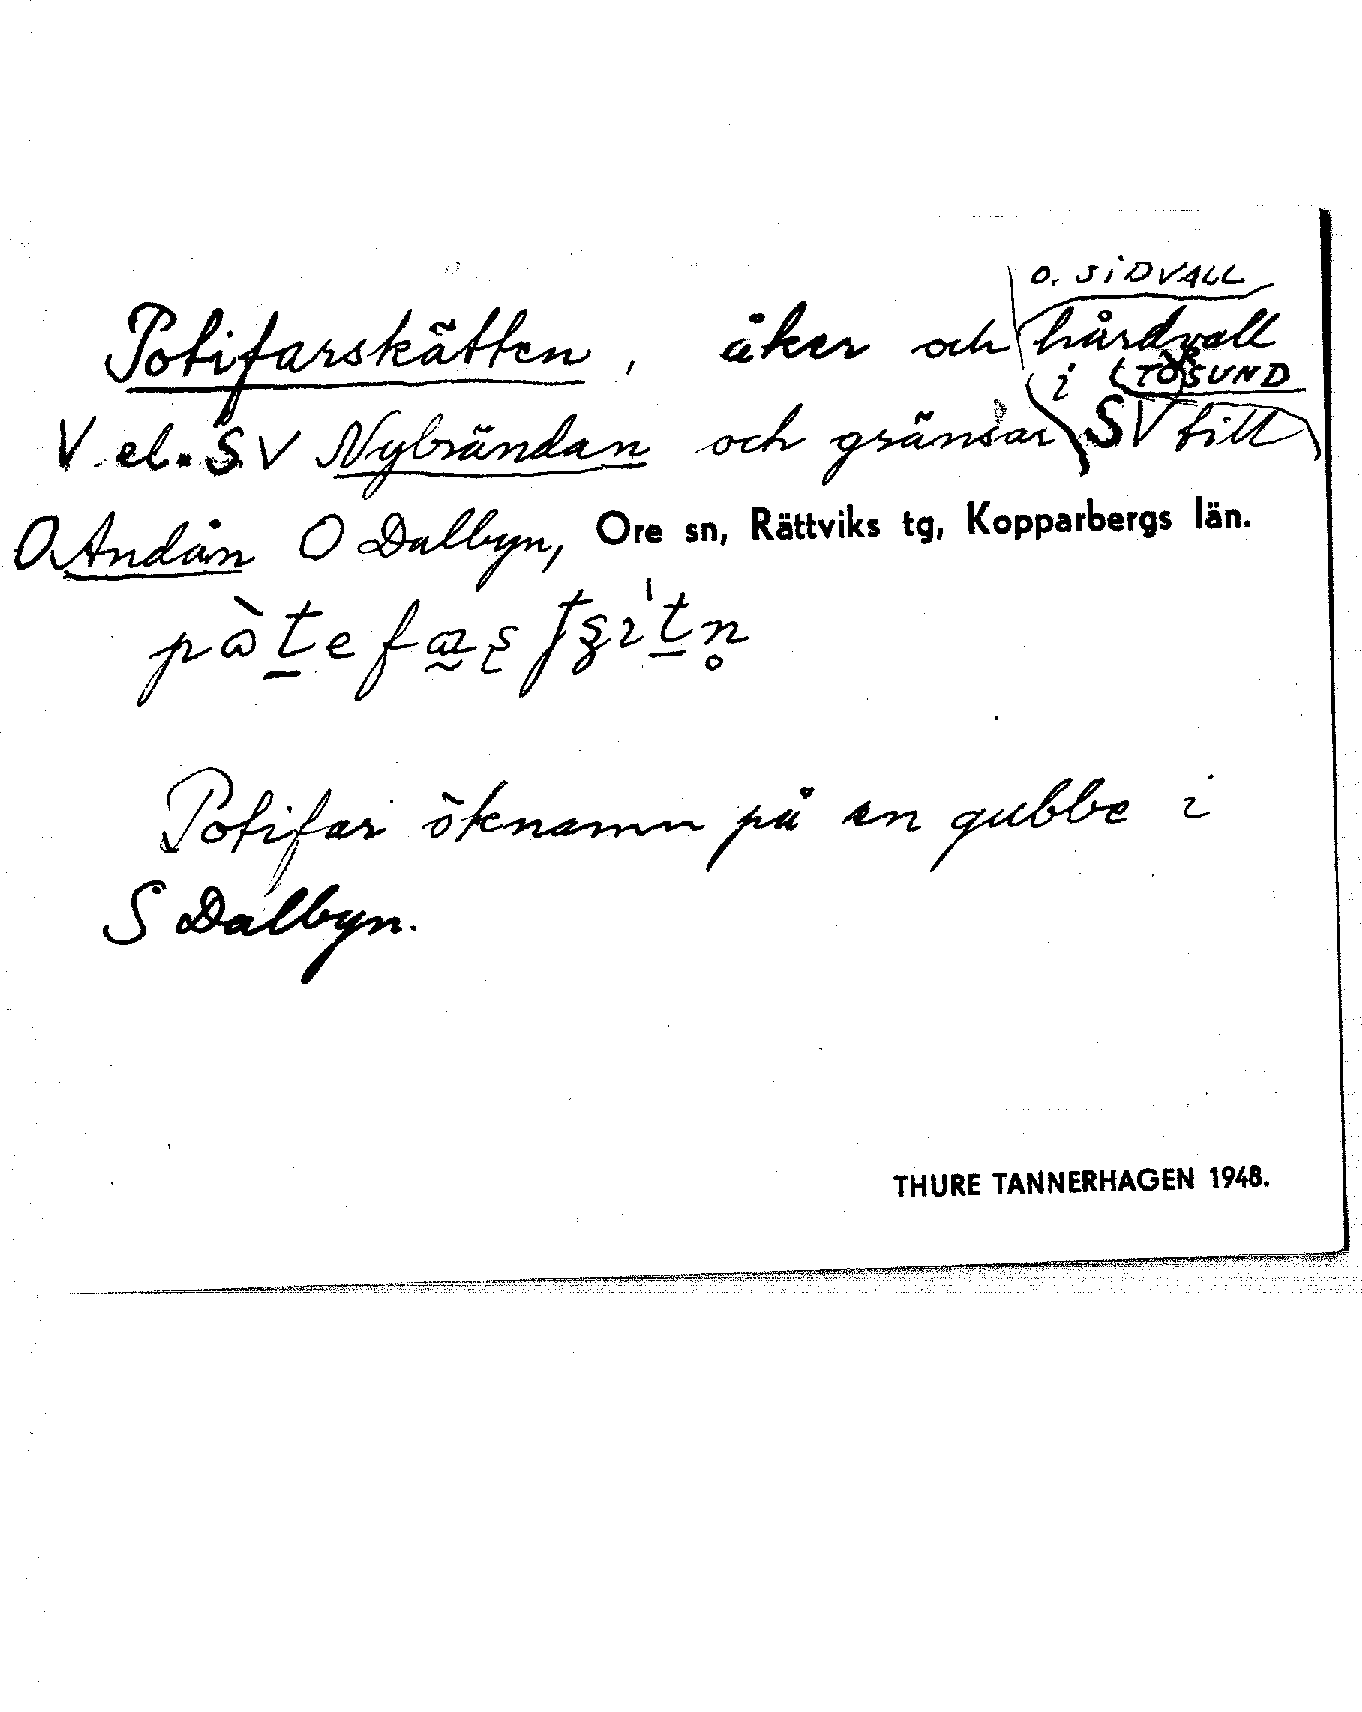 O. SIDVALL
Potifarskätten, åker och hårdvall
i TOSUND
V el. SV Nybrändan och gränsar SV till
O Andån O Dalbyn, Ore sn, Rättviks tg, Kopparbergs län.
Potifar öknamn på en gubbe i
S Dalbyn.
THURE TANNERHAGEN 1948.